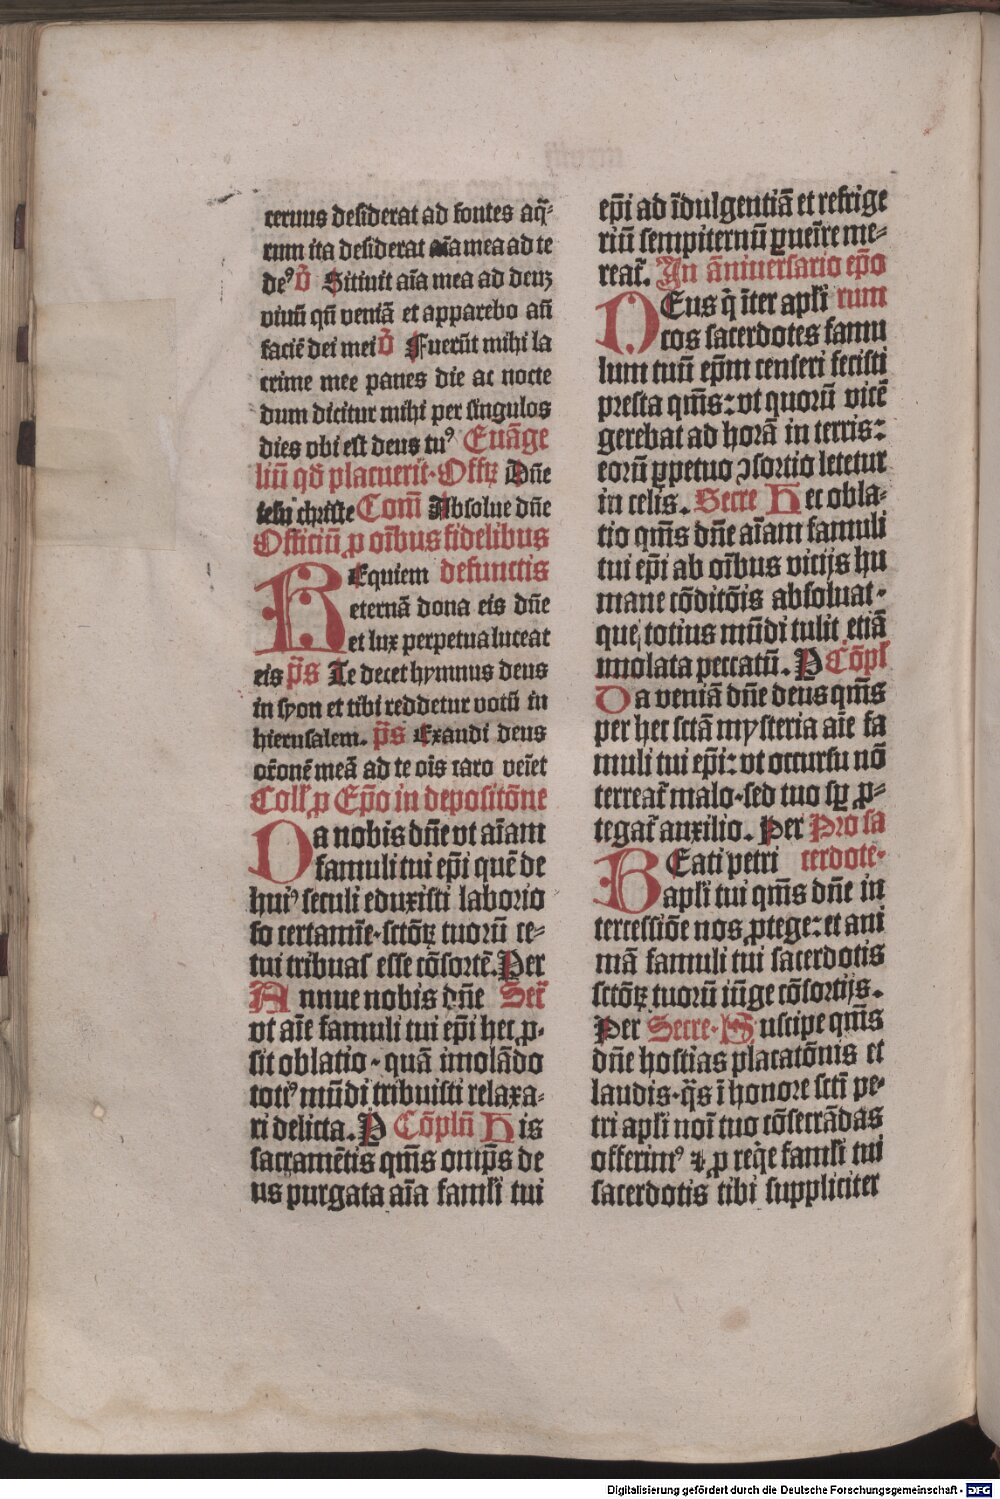 cernus desiderat ad fontes aq̃⸗
rum ita desiderat aĩa mea ad te
de⁹ v̄ Sitiuit aĩa mea ad deuʒ
viuũ qñ veniã et apparebo añ
faciẽ dei mei v̄ Fuerũt mihi la
crime mee panes die ac nocte
dum dicitur mihi per singulos
dies vbi est deus tu⁹ Euãge
liũ qd̃ placuerit· Offꝫ Dñe
iesu christe Com̃ Absolue dñe
Officiũ ꝓ oĩbus fidelibus
REquiem defunctis
eternã dona eis dñe
et lux perpetua luceat
eis p̃s Te decet hymnus deus
in syon et tibi reddetur votũ in
hierusalem. p̃s Exaudi deus
or̃onẽ meã ad te oĩs caro veĩet
Coll̃ ꝓ Ep̃o in depositõne
Da nobis dñe vt aĩam
famuli tui ep̃i quẽ de
hui⁹ seculi eduxisti laborio
so certamĩe·sctõꝝ tuorũ ce⸗
tui tribuas esse cõsortẽ. Per
Annue nobis dñe Secr̃
vt aĩe famuli tui ep̃i hec ꝓ⸗
sit oblatio·quã imolãdo
toti⁹ mũdi tribuisti relaxa⸗
ri delicta. P Cõplũ His
sacramẽtis qm̃s omp̃s de
us purgata aĩa famĩi tui
ep̃i ad ĩdulgentiã et refrige
riũ sempiternũ ꝑueĩre me⸗
reat̃. In ãniuersario ep̃o
DEus q̃ ĩter apl̃i rum
cos sacerdotes famu
lum tuũ ep̃m censeri fecisti
presta qm̃s: vt quorũ vicẽ
gerebat ad horã in terris:
eorũ ꝑpetuo ↄsortio letetur
in celis. Secre Hec obla⸗
tio qm̃s dñe aĩam famuli
tui ep̃i ab oĩbus vicijs hu
mane cõditõis absoluat·
que totius mũdi tulit etiã
imolata peccatũ. P Cõpl̃
Da veniã dñe deus qm̃s
per hec sctã mysteria aĩe fa
muli tui ep̃i: vt occursu nõ
terreat̃ malo·sed tuo sꝑ ꝓ⸗
tegat̃ auxilio. Per Pro sa
BEati petri cerdote·
apl̃i tui qm̃s dñe in
tercessiõe nos ꝓtege: et ani
mã famuli tui sacerdotis
sctõꝝ tuorũ iũge cõsortijs.
Per Secre·Suscipe qm̃s
dñe hostias placatõnis et
laudis·q̃s ĩ honore sctĩ pe⸗
tri apl̃i noĩ tuo cõsecrãdas
offerim⁹ ⁊ ꝓ req̃e faml̃i tui
sacerdotis tibi suppliciter
Digitalisierung gefördert durch die Deutsche Forschungsgemeinschaft - DFG